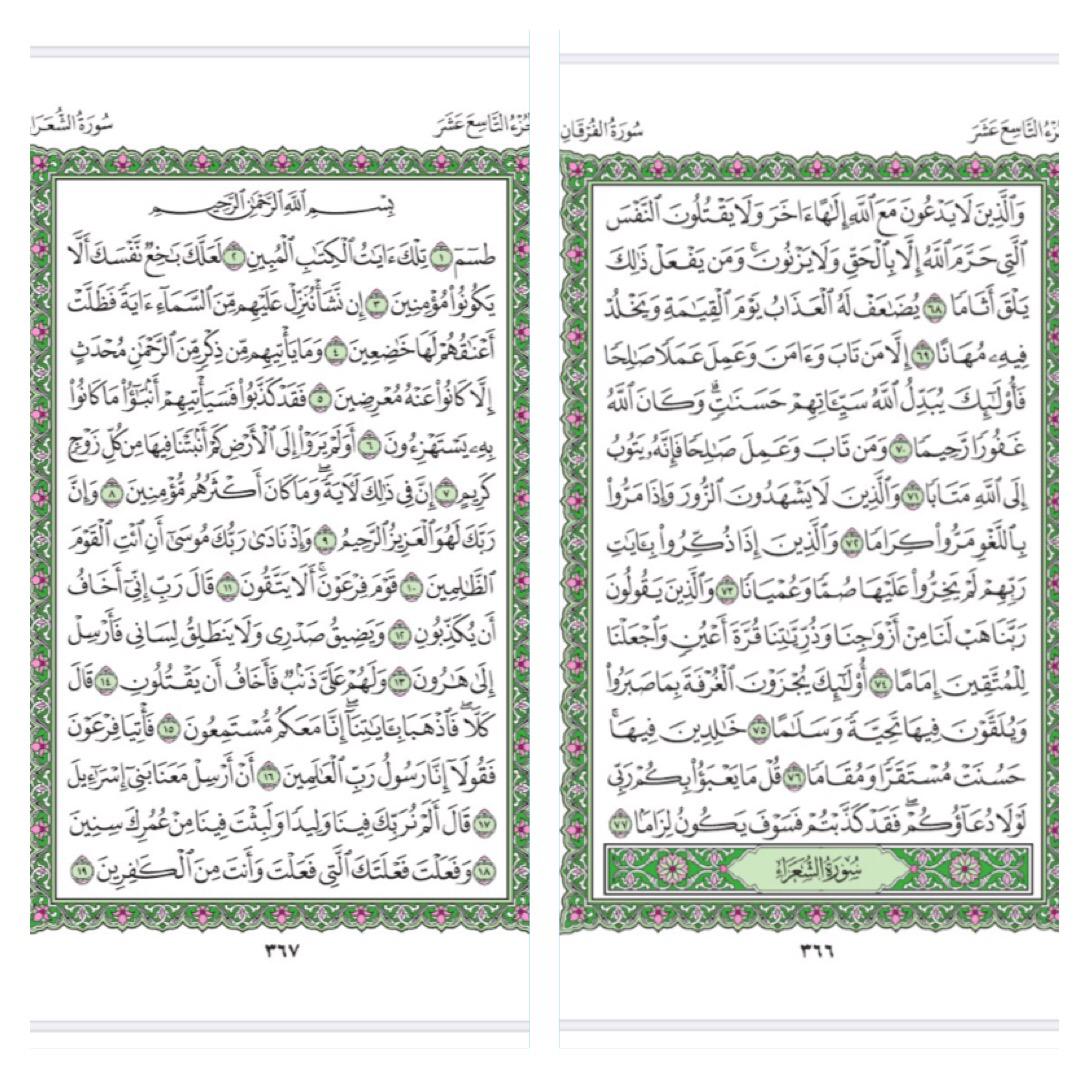 سُورَةُ الفُرْقَانِ
وَٱلَّذِينَ لَا يَدْعُونَ مَعَ ٱللَّهِ إِلَٰهًا ءَاخَرَ وَلَا يَقْتُلُونَ ٱلنَّفْسَ
ٱلَّتِي حَرَّمَ ٱللَّهُ إِلَّا بِٱلْحَقِّ وَلَا يَزْنُونَۚ وَمَن يَفْعَلْ ذَٰلِكَ
يَلْقَ أَثَامًا ٦٨ يُضَٰعَفْ لَهُ ٱلْعَذَابُ يَوْمَ ٱلْقِيَٰمَةِ وَيَخْلُدْ
فِيهِۦ مُهَانًا ٦٩ إِلَّا مَن تَابَ وَءَامَنَ وَعَمِلَ عَمَلًا صَٰلِحًا
فَأُوْلَٰٓئِكَ يُبَدِّلُ ٱللَّهُ سَيِّـَٔاتِهِمْ حَسَنَٰتٍۗ وَكَانَ ٱللَّهُ
غَفُورًا رَّحِيمًا ٧٠ وَمَن تَابَ وَعَمِلَ صَٰلِحًا فَإِنَّهُۥ يَتُوبُ
إِلَى ٱللَّهِ مَتَابًا ٧١ وَٱلَّذِينَ لَا يَشْهَدُونَ ٱلزُّورَ وَإِذَا مَرُّواْ
بِٱللَّغْوِ مَرُّواْ كِرَامًا ٧٢ وَٱلَّذِينَ إِذَا ذُكِّرُواْ بِـَٔايَٰتِ
رَبِّهِمْ لَمْ يَخِرُّواْ عَلَيْهَا صُمًّا وَعُمْيَانًا ٧٣ وَٱلَّذِينَ يَقُولُونَ
رَبَّنَا هَبْ لَنَا مِنْ أَزْوَٰجِنَا وَذُرِّيَّٰتِنَا قُرَّةَ أَعْيُنٍ وَٱجْعَلْنَا
لِلْمُتَّقِينَ إِمَامًا ٧٤ أُوْلَٰٓئِكَ يُجْزَوْنَ ٱلْغُرْفَةَ بِمَا صَبَرُواْ
وَيُلَقَّوْنَ فِيهَا تَحِيَّةً وَسَلَٰمًا ٧٥ خَٰلِدِينَ فِيهَاۚ
حَسُنَتْ مُسْتَقَرًّا وَمُقَامًا ٧٦ قُلْ مَا يَعْبَؤُاْ بِكُمْ رَبِّي
لَوْلَا دُعَآؤُكُمْۖ فَقَدْ كَذَّبْتُمْ فَسَوْفَ يَكُونُ لِزَامًا ٧٧
سُورَةُ الشُّعَرَاءِ
٣٦٦
بِسْمِ ٱللَّهِ ٱلرَّحْمَٰنِ ٱلرَّحِيمِ
طسٓمٓ ١ تِلْكَ ءَايَٰتُ ٱلْكِتَٰبِ ٱلْمُبِينِ ٢ لَعَلَّكَ بَٰخِعٌ نَّفْسَكَ أَلَّا
يَكُونُواْ مُؤْمِنِينَ ٣ إِن نَّشَأْ نُنَزِّلْ عَلَيْهِم مِّنَ ٱلسَّمَآءِ ءَايَةً فَظَلَّتْ
أَعْنَٰقُهُمْ لَهَا خَٰضِعِينَ ٤ وَمَا يَأْتِيهِم مِّن ذِكْرٍ مِّنَ ٱلرَّحْمَٰنِ مُحْدَثٍ
إِلَّا كَانُواْ عَنْهُ مُعْرِضِينَ ٥ فَقَدْ كَذَّبُواْ فَسَيَأْتِيهِمْ أَنۢبَٰٓؤُاْ مَا كَانُواْ
بِهِۦ يَسْتَهْزِءُونَ ٦ أَوَلَمْ يَرَوْاْ إِلَى ٱلْأَرْضِ كَمْ أَنۢبَتْنَا فِيهَا مِن كُلِّ زَوْجٍ
كَرِيمٍ ٧ إِنَّ فِي ذَٰلِكَ لَأٓيَةًۖ وَمَا كَانَ أَكْثَرُهُم مُّؤْمِنِينَ ٨ وَإِنَّ
رَبَّكَ لَهُوَ ٱلْعَزِيزُ ٱلرَّحِيمُ ٩ وَإِذْ نَادَىٰ رَبُّكَ مُوسَىٰٓ أَنِ ٱئْتِ ٱلْقَوْمَ
ٱلظَّٰلِمِينَ ١٠ قَوْمَ فِرْعَوْنَۚ أَلَا يَتَّقُونَ ١١ قَالَ رَبِّ إِنِّيٓ أَخَافُ
أَن يُكَذِّبُونِ ١٢ وَيَضِيقُ صَدْرِي وَلَا يَنطَلِقُ لِسَانِي فَأَرْسِلْ
إِلَىٰ هَٰرُونَ ١٣ وَلَهُمْ عَلَيَّ ذَنۢبٌ فَأَخَافُ أَن يَقْتُلُونِ ١٤ قَالَ
كَلَّاۖ فَٱذْهَبَا بِـَٔايَٰتِنَآۖ إِنَّا مَعَكُم مُّسْتَمِعُونَ ١٥ فَأْتِيَا فِرْعَوْنَ
فَقُولَآ إِنَّا رَسُولُ رَبِّ ٱلْعَٰلَمِينَ ١٦ أَنْ أَرْسِلْ مَعَنَا بَنِيٓ إِسْرَٰٓءِيلَ
١٧ قَالَ أَلَمْ نُرَبِّكَ فِينَا وَلِيدًا وَلَبِثْتَ فِينَا مِنْ عُمُرِكَ سِنِينَ
١٨ وَفَعَلْتَ فَعْلَتَكَ ٱلَّتِي فَعَلْتَ وَأَنتَ مِنَ ٱلْكَٰفِرِينَ ١٩
٣٦٧